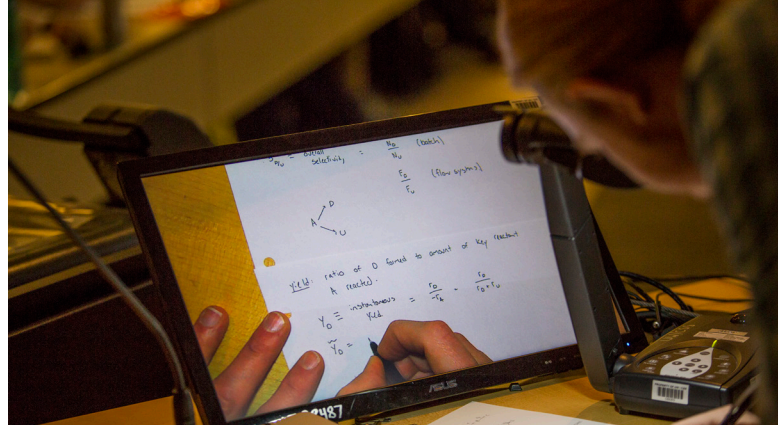 S̃D/U = overall selectivity = ND/NU (batch)
FD/FU (flow systems)
D
A
U
Yield: ratio of D formed to amount of key reactant
A reacted.
YD ≡ instantaneous yield = rD/-rA = rD/rD+rU
ỸD =
ASUS
8487